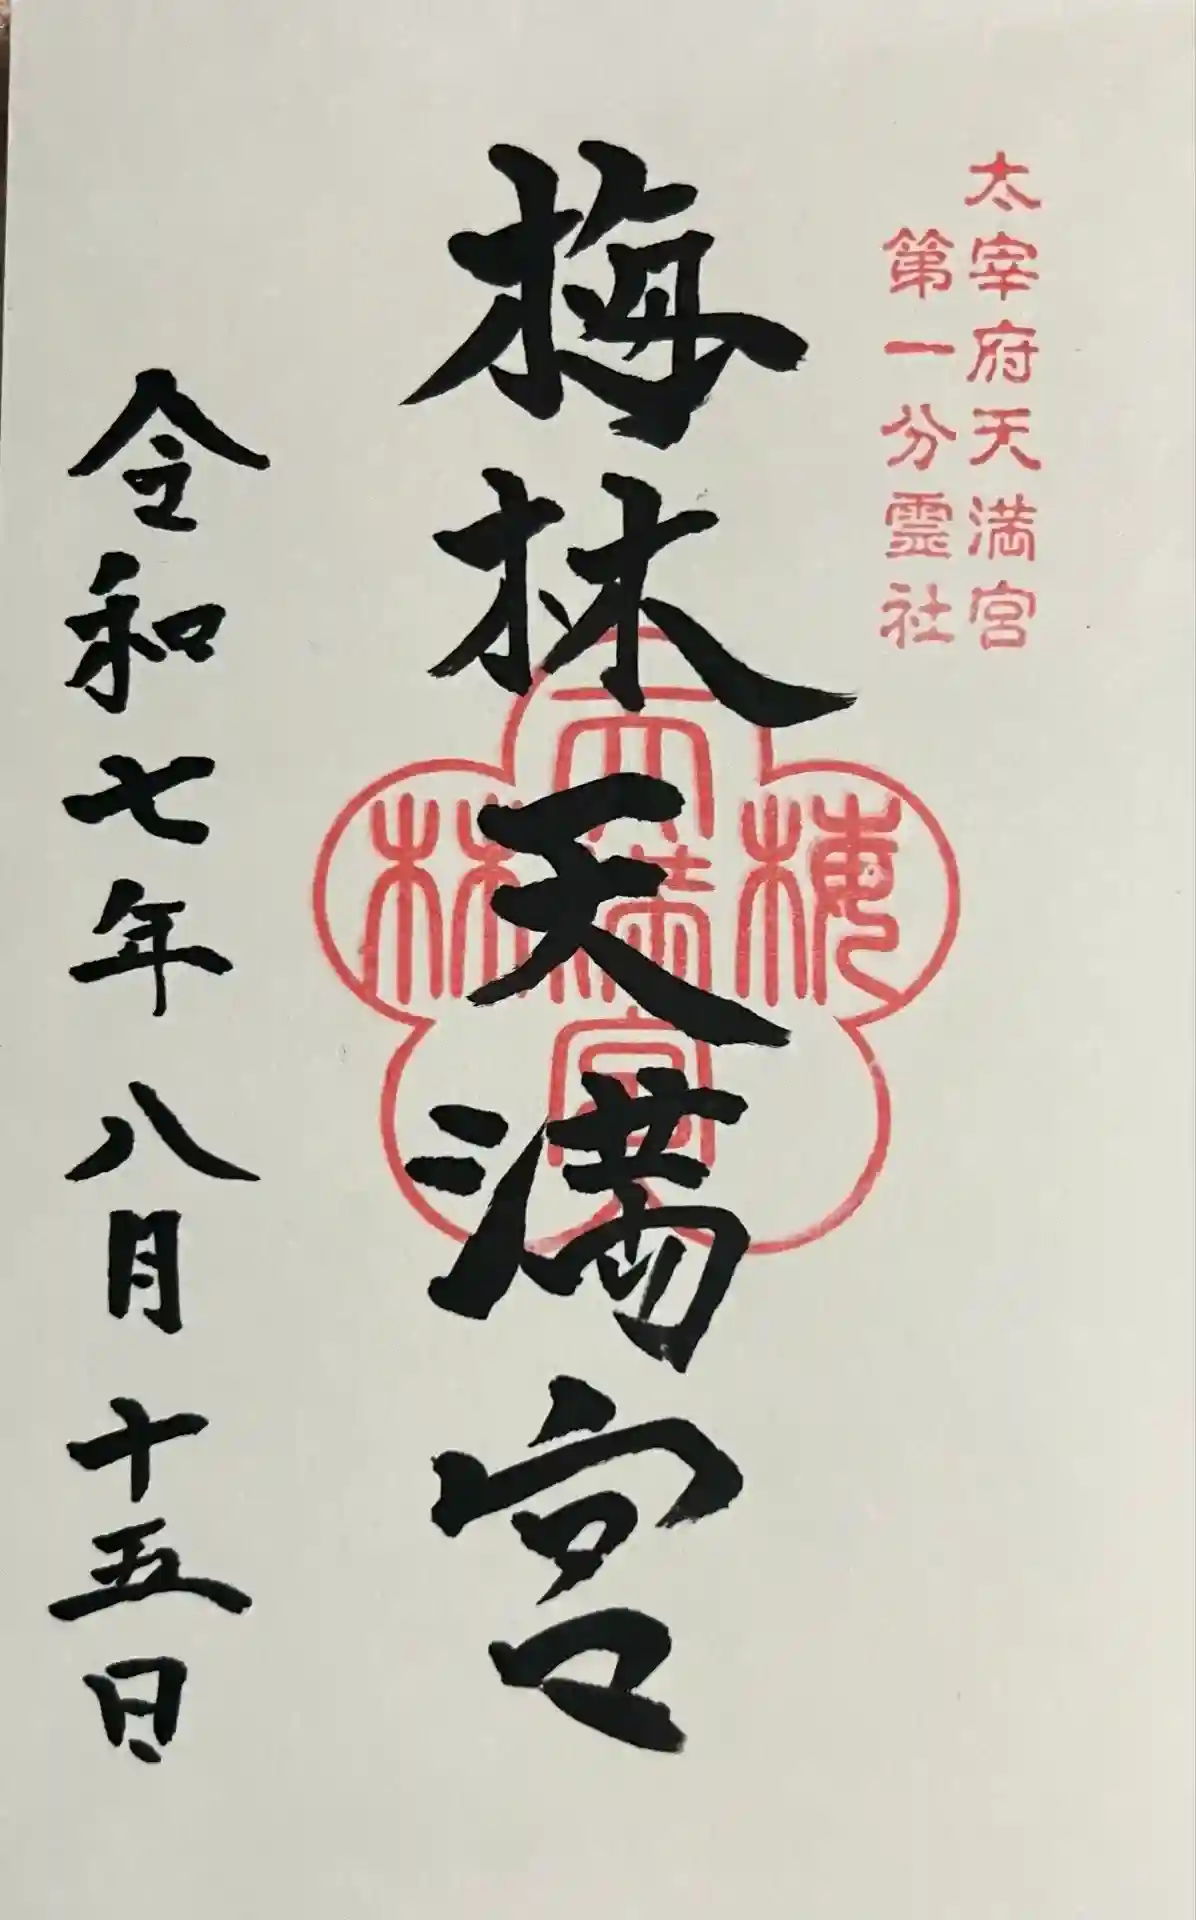 太宰府天満宮
第一分霊社
梅林天満宮
梅林
天満宮
令和七年八月十五日